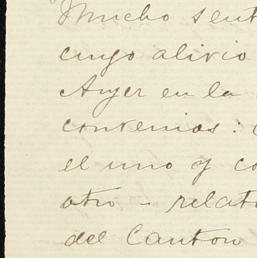 Mucho sent
cuyo alivio
Ayer en la
convenios:
el uno y co
otro - relat
del Canton